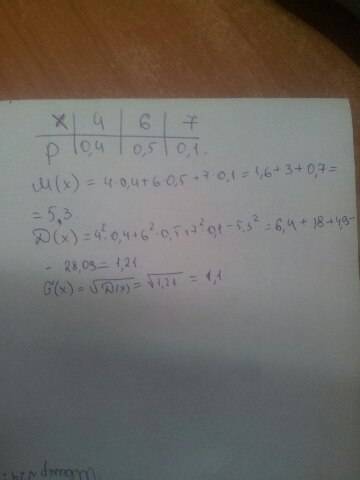 X | 4 | 6 | 7
P | 0,4 | 0,5 | 0,1.
M(x) = 4·0,4+6·0,5+7·0,1=1,6+3+0,7=
= 5,3
D(x)=4²·0,4+6²·0,5+7²·0,1-5,3²=6,4+18+4,9-
- 28,09=1,21
G(x)=√D(x)=√1,21 = 1,1